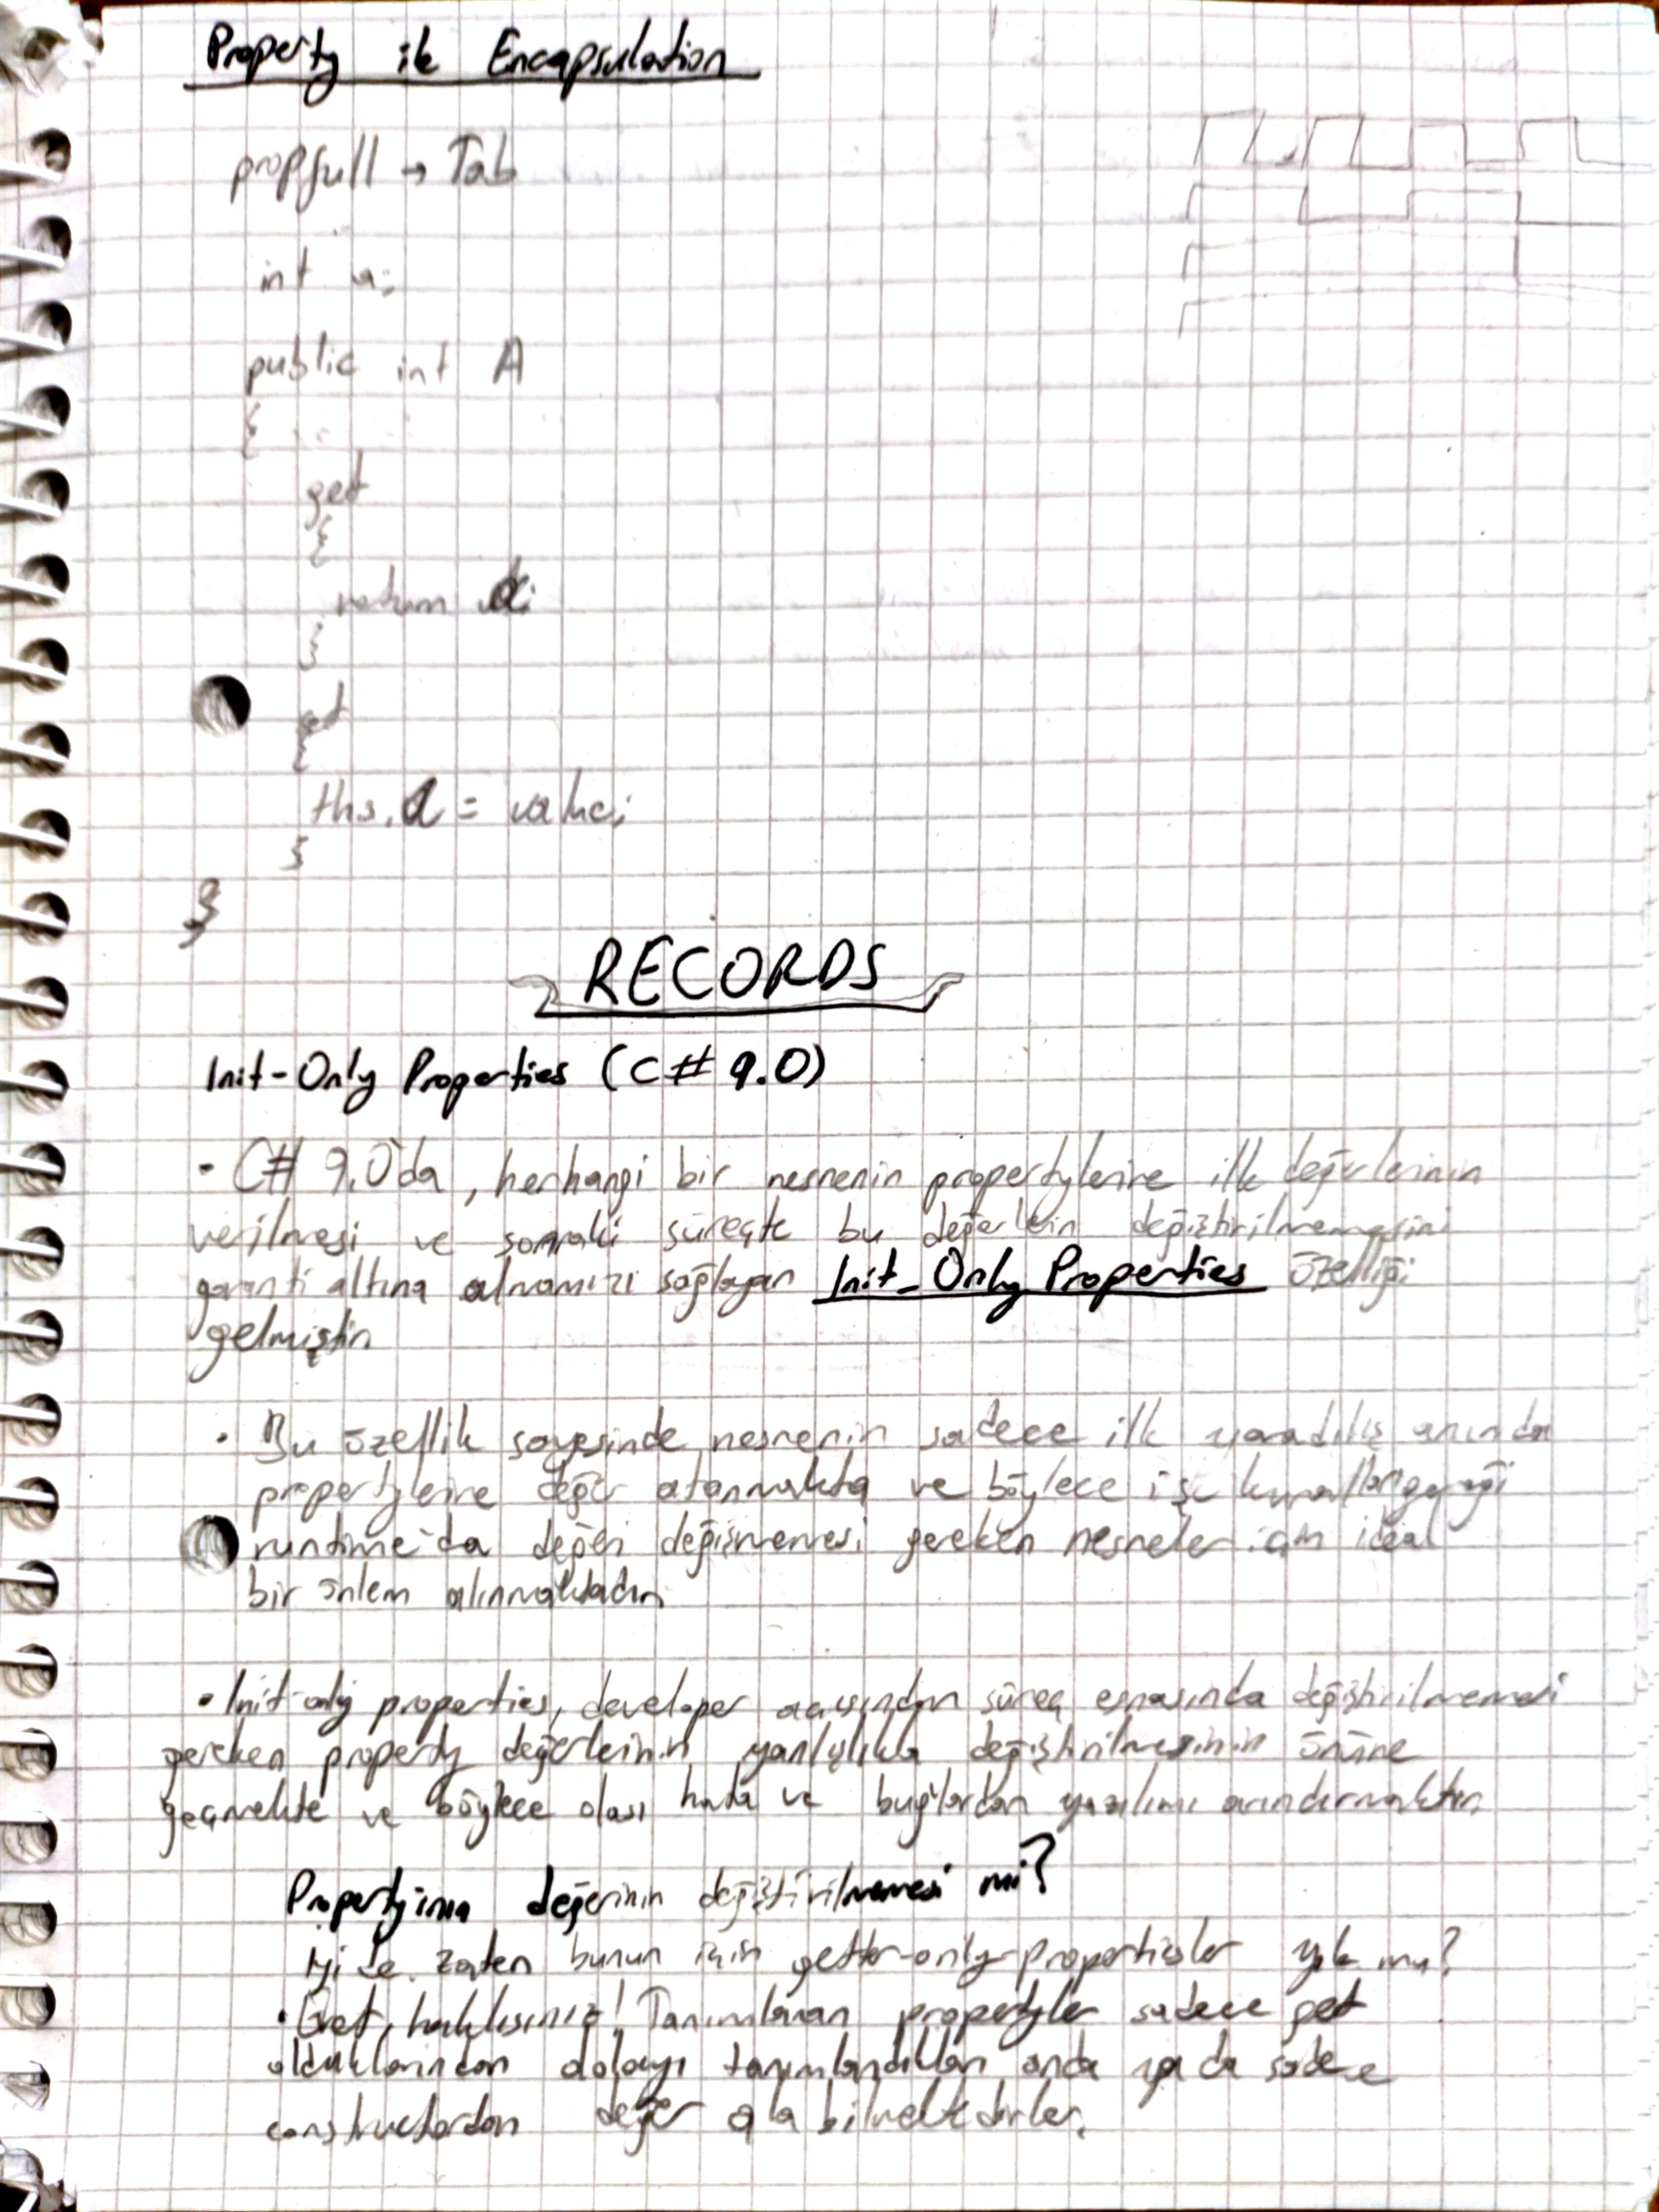 Property ile Encapsulation
propfull → Tab
int a;
public int A
{
get
{
return a;
}
set
{
this.a = value;
}
}
RECORDS
Init-Only Properties (C# 9.0)
• C# 9.0'da, herhangi bir nesnenin propertylerine ilk değerlerinin
verilmesi ve sonraki süreçte bu değerlerin değiştirilmemesini
garanti altına almamızı sağlayan Init-Only Properties özelliği
gelmiştir.
• Bu özellik sayesinde nesnenin sadece ilk yaradılış anında
propertylerine değer atanmakta ve böylece iş kuralları gereği
runtime'da değeri değişmemesi gereken nesneler için ideal
bir önlem alınmaktadır.
• Init-only properties, developer açısından süreç esnasında değiştirilmemesi
gereken property değerlerinin yanlışlıkla değiştirilmesinin önüne
geçmekte ve böylece olası hata ve bug'lardan yazılımı arındırmaktır.
Property'inin değerinin değiştirilmemesi mi?
İyi de zaten bunun için getter-only-propertiesler yok mu?
• Evet, haklısınız! Tanımlanan propertyler sadece get
olduklarından dolayı tanımlandıkları anda ya da sadece
constructordan değer alabilmektedirler.